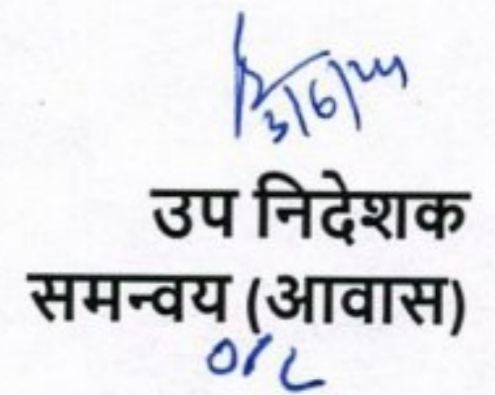 3/6/24
उप निदेशक
समन्वय (आवास)